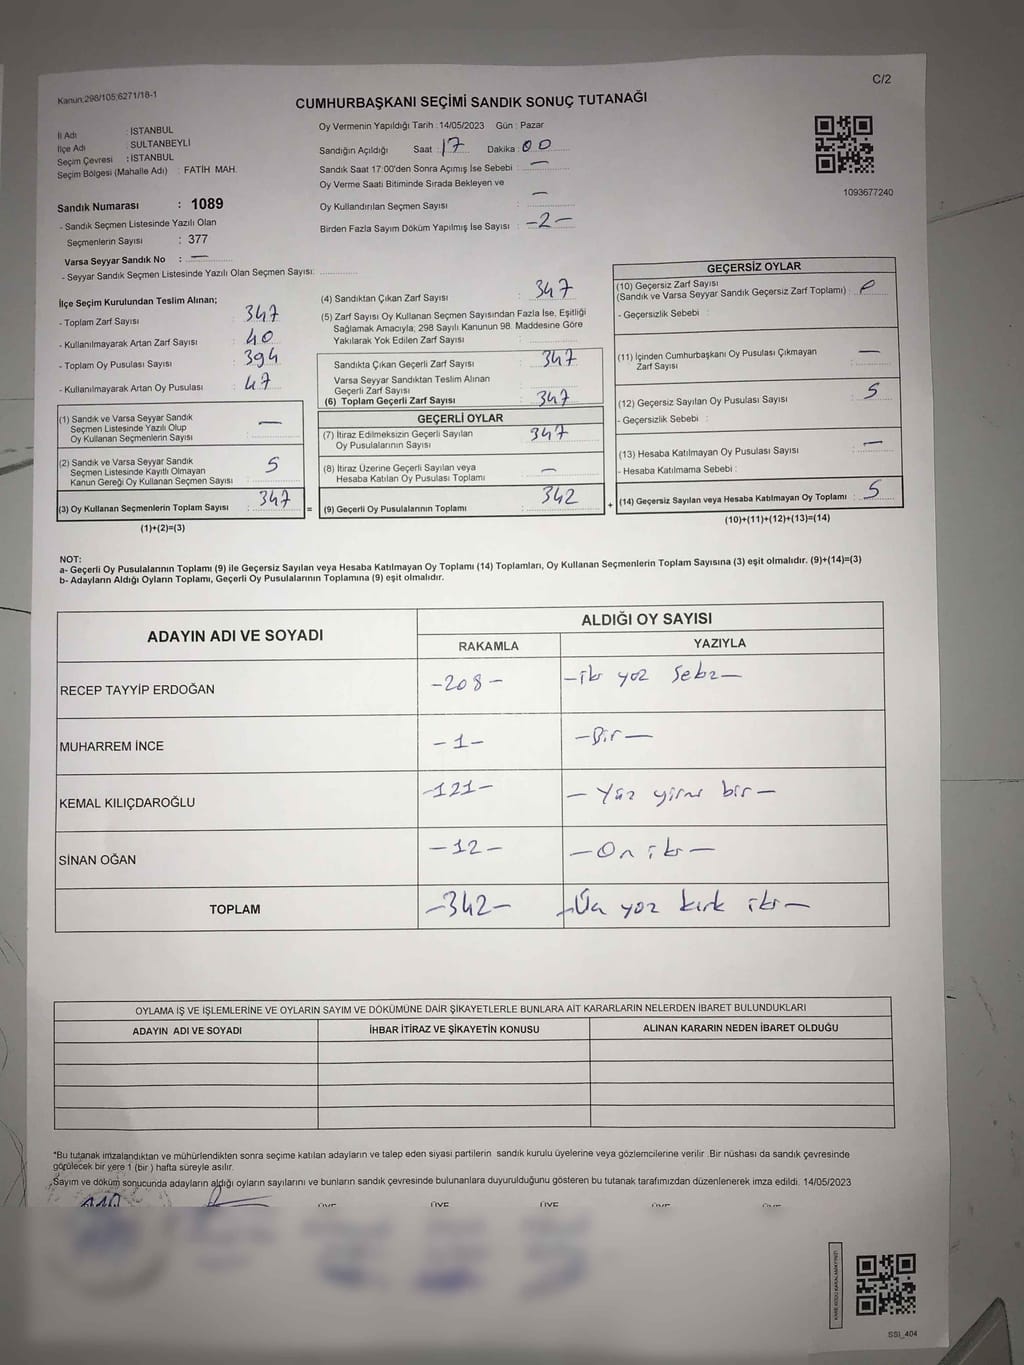 C/2
Kanun:298/105;6271/18-1
CUMHURBAŞKANI SEÇİMİ SANDIK SONUÇ TUTANAĞI
İl Adı : İSTANBUL
İlçe Adı : SULTANBEYLİ
Seçim Çevresi : İSTANBUL
Seçim Bölgesi (Mahalle Adı) : FATİH MAH.
Sandık Numarası : 1089
- Sandık Seçmen Listesinde Yazılı Olan
Seçmenlerin Sayısı : 377
Varsa Seyyar Sandık No : —
- Seyyar Sandık Seçmen Listesinde Yazılı Olan Seçmen Sayısı:
Oy Vermenin Yapıldığı Tarih :14/05/2023 Gün : Pazar
Sandığın Açıldığı Saat : 17 Dakika : 00
Sandık Saat 17:00'den Sonra Açımış İse Sebebi : —
Oy Verme Saati Bitiminde Sırada Bekleyen ve
Oy Kullandırılan Seçmen Sayısı : —
Birden Fazla Sayım Döküm Yapılmış İse Sayısı : -2-
1093677240
İlçe Seçim Kurulundan Teslim Alınan;
- Toplam Zarf Sayısı : 347
- Kullanılmayarak Artan Zarf Sayısı : 40
- Toplam Oy Pusulası Sayısı : 394
- Kullanılmayarak Artan Oy Pusulası : 47
(1) Sandık ve Varsa Seyyar Sandık
Seçmen Listesinde Yazılı Olup
Oy Kullanan Seçmenlerin Sayısı : —
(2) Sandık ve Varsa Seyyar Sandık
Seçmen Listesinde Kayıtlı Olmayan
Kanun Gereği Oy Kullanan Seçmen Sayısı : 5
(3) Oy Kullanan Seçmenlerin Toplam Sayısı : 347 =
(1)+(2)=(3)
(4) Sandıktan Çıkan Zarf Sayısı : 347
(5) Zarf Sayısı Oy Kullanan Seçmen Sayısından Fazla İse, Eşitliği
Sağlamak Amacıyla; 298 Sayılı Kanunun 98. Maddesine Göre
Yakılarak Yok Edilen Zarf Sayısı :
Sandıkta Çıkan Geçerli Zarf Sayısı : 347
Varsa Seyyar Sandıktan Teslim Alınan
Geçerli Zarf Sayısı :
(6) Toplam Geçerli Zarf Sayısı : 347
GEÇERLİ OYLAR
(7) İtiraz Edilmeksizin Geçerli Sayılan
Oy Pusulalarının Sayısı : 347
(8) İtiraz Üzerine Geçerli Sayılan veya
Hesaba Katılan Oy Pusulası Toplamı : —
(9) Geçerli Oy Pusulalarının Toplamı : 342 +
GEÇERSİZ OYLAR
(10) Geçersiz Zarf Sayısı
(Sandık ve Varsa Seyyar Sandık Geçersiz Zarf Toplamı) :
- Geçersizlik Sebebi :
(11) İçinden Cumhurbaşkanı Oy Pusulası Çıkmayan
Zarf Sayısı : —
(12) Geçersiz Sayılan Oy Pusulası Sayısı : 5
- Geçersizlik Sebebi :
(13) Hesaba Katılmayan Oy Pusulası Sayısı : —
- Hesaba Katılmama Sebebi :
(14) Geçersiz Sayılan veya Hesaba Katılmayan Oy Toplamı : 5
(10)+(11)+(12)+(13)=(14)
NOT:
a- Geçerli Oy Pusulalarının Toplamı (9) ile Geçersiz Sayılan veya Hesaba Katılmayan Oy Toplamı (14) Toplamları, Oy Kullanan Seçmenlerin Toplam Sayısına (3) eşit olmalıdır. (9)+(14)=(3)
b- Adayların Aldığı Oyların Toplamı, Geçerli Oy Pusulalarının Toplamına (9) eşit olmalıdır.
ADAYIN ADI VE SOYADI
ALDIĞI OY SAYISI
RAKAMLA YAZIYLA
RECEP TAYYİP ERDOĞAN -208- -iki yüz sekiz-
MUHARREM İNCE -1- -Bir-
KEMAL KILIÇDAROĞLU -121- -Yüz yirmi bir-
SİNAN OĞAN -12- -On iki-
TOPLAM -342- -Üç yüz kırk iki-
OYLAMA İŞ VE İŞLEMLERİNE VE OYLARIN SAYIM VE DÖKÜMÜNE DAİR ŞİKAYETLERLE BUNLARA AİT KARARLARIN NELERDEN İBARET BULUNDUKLARI
ADAYIN ADI VE SOYADI İHBAR İTİRAZ VE ŞİKAYETİN KONUSU ALINAN KARARIN NEDEN İBARET OLDUĞU
*Bu tutanak imzalandıktan ve mühürlendikten sonra seçime katılan adayların ve talep eden siyasi partilerin sandık kurulu üyelerine veya gözlemcilerine verilir .Bir nüshası da sandık çevresinde
görülecek bir yere 1 (bir ) hafta süreyle asılır.
Sayım ve döküm sonucunda adayların aldığı oyların sayılarını ve bunların sandık çevresinde bulunanlara duyurulduğunu gösteren bu tutanak tarafımızdan düzenlenerek imza edildi. 14/05/2023
ÜYE ÜYE ÜYE ÜYE ÜYE
KARE KODU KARALAMAYINIZ!
SSI_404